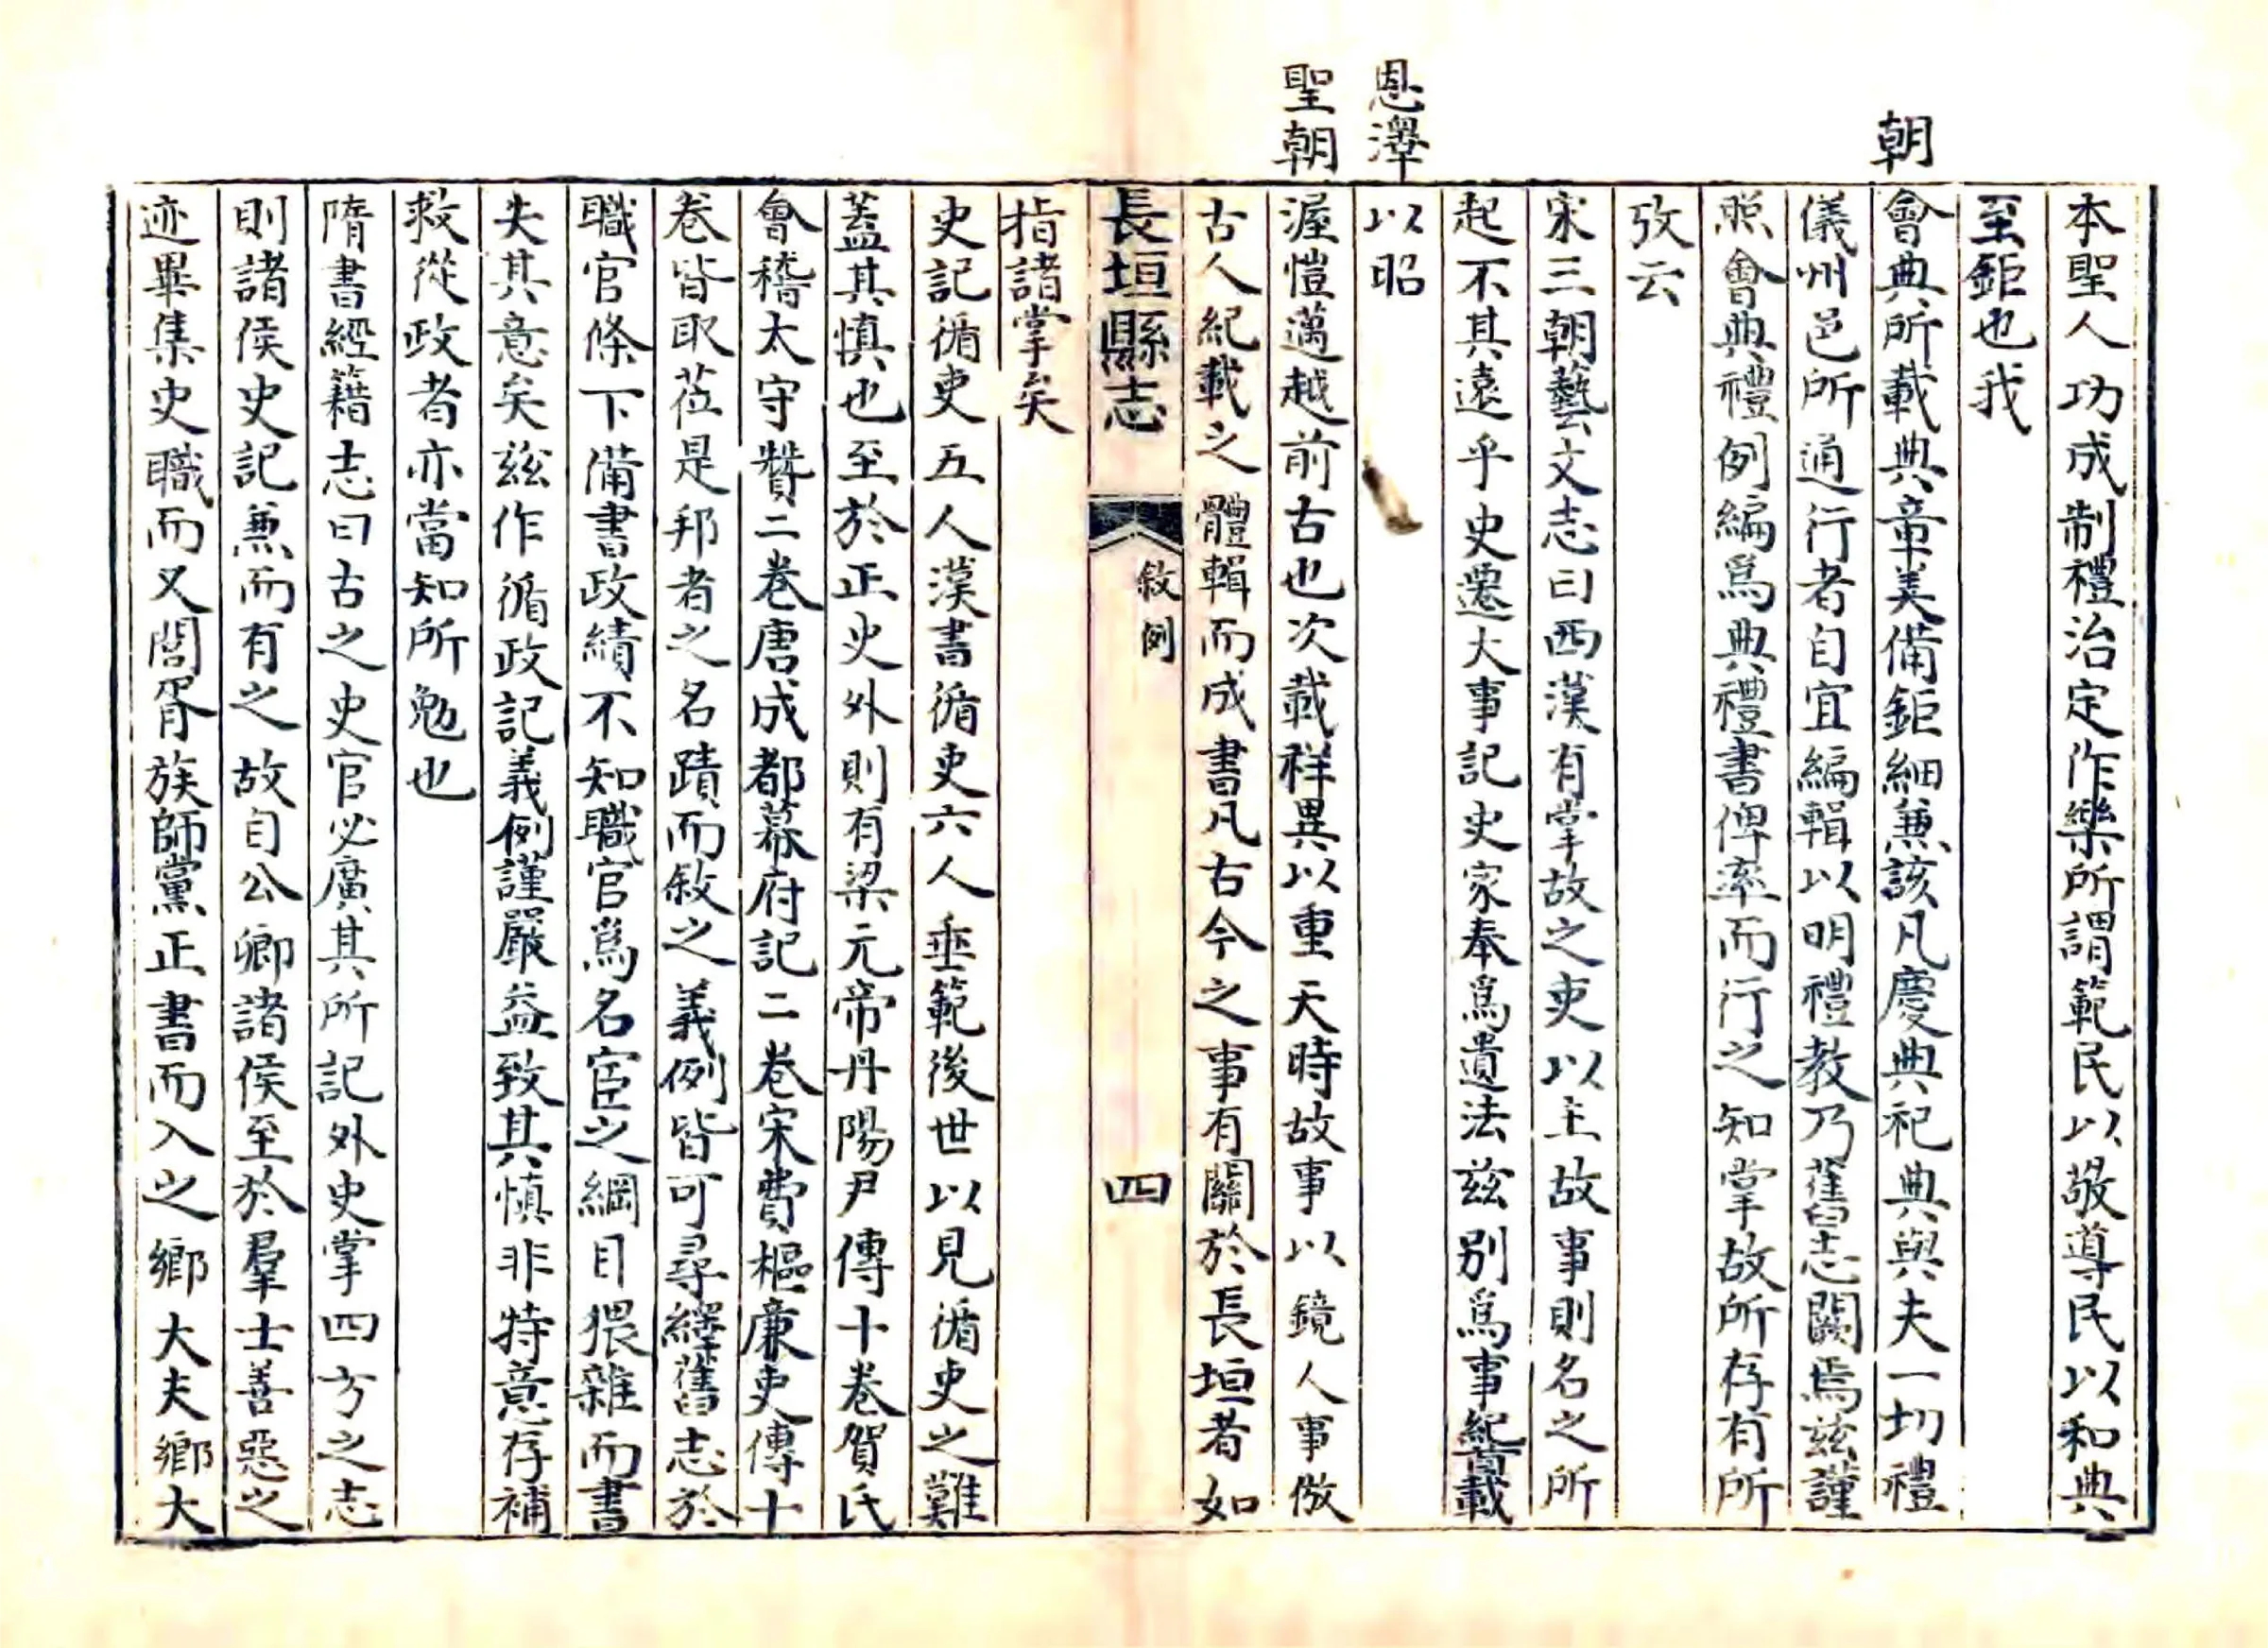 本聖人功成制禮治定作樂所謂範民以敬導民以和典
至鉅也我
朝
會典所載典章美備鉅細兼該凡慶典祀典與夫一切禮
儀州邑所通行者自宜編輯以明禮教乃舊志闕焉玆謹
照會典禮例編爲典禮書俾率而行之知掌故所存有所
攷云
宋三朝藝文志曰西漢有掌故之吏以主故事則名之所
起不其遠乎史遷大事記史家奉爲遺法玆別爲事紀首載
恩澤
以昭
聖朝
渥愷邁越前古也次載祥異以重天時故事以鏡人事倣
古人紀載之體輯而成書凡古今之事有關於長垣者如
長垣縣志
敘例
四
指諸掌矣
史記循吏五人漢書循吏六人垂範後世以見循吏之難
蓋其慎也至於正史外則有梁元帝丹陽尹傳十卷賀氏
會稽太守贊二卷唐成都幕府記二卷宋費樞廉吏傳十
卷皆取莅是邦者之名蹟而敘之義例皆可尋繹舊志於
職官條下備書政績不知職官爲名宦之綱目猥雜而書
失其意矣玆作循政記義例謹嚴益致其慎非特意存補
救從政者亦當知所勉也
隋書經籍志曰古之史官必廣其所記外史掌四方之志
則諸侯史記兼而有之故自公卿諸侯至於羣士善惡之
迹畢集史職而又閭胥族師黨正書而入之鄉大夫鄉大